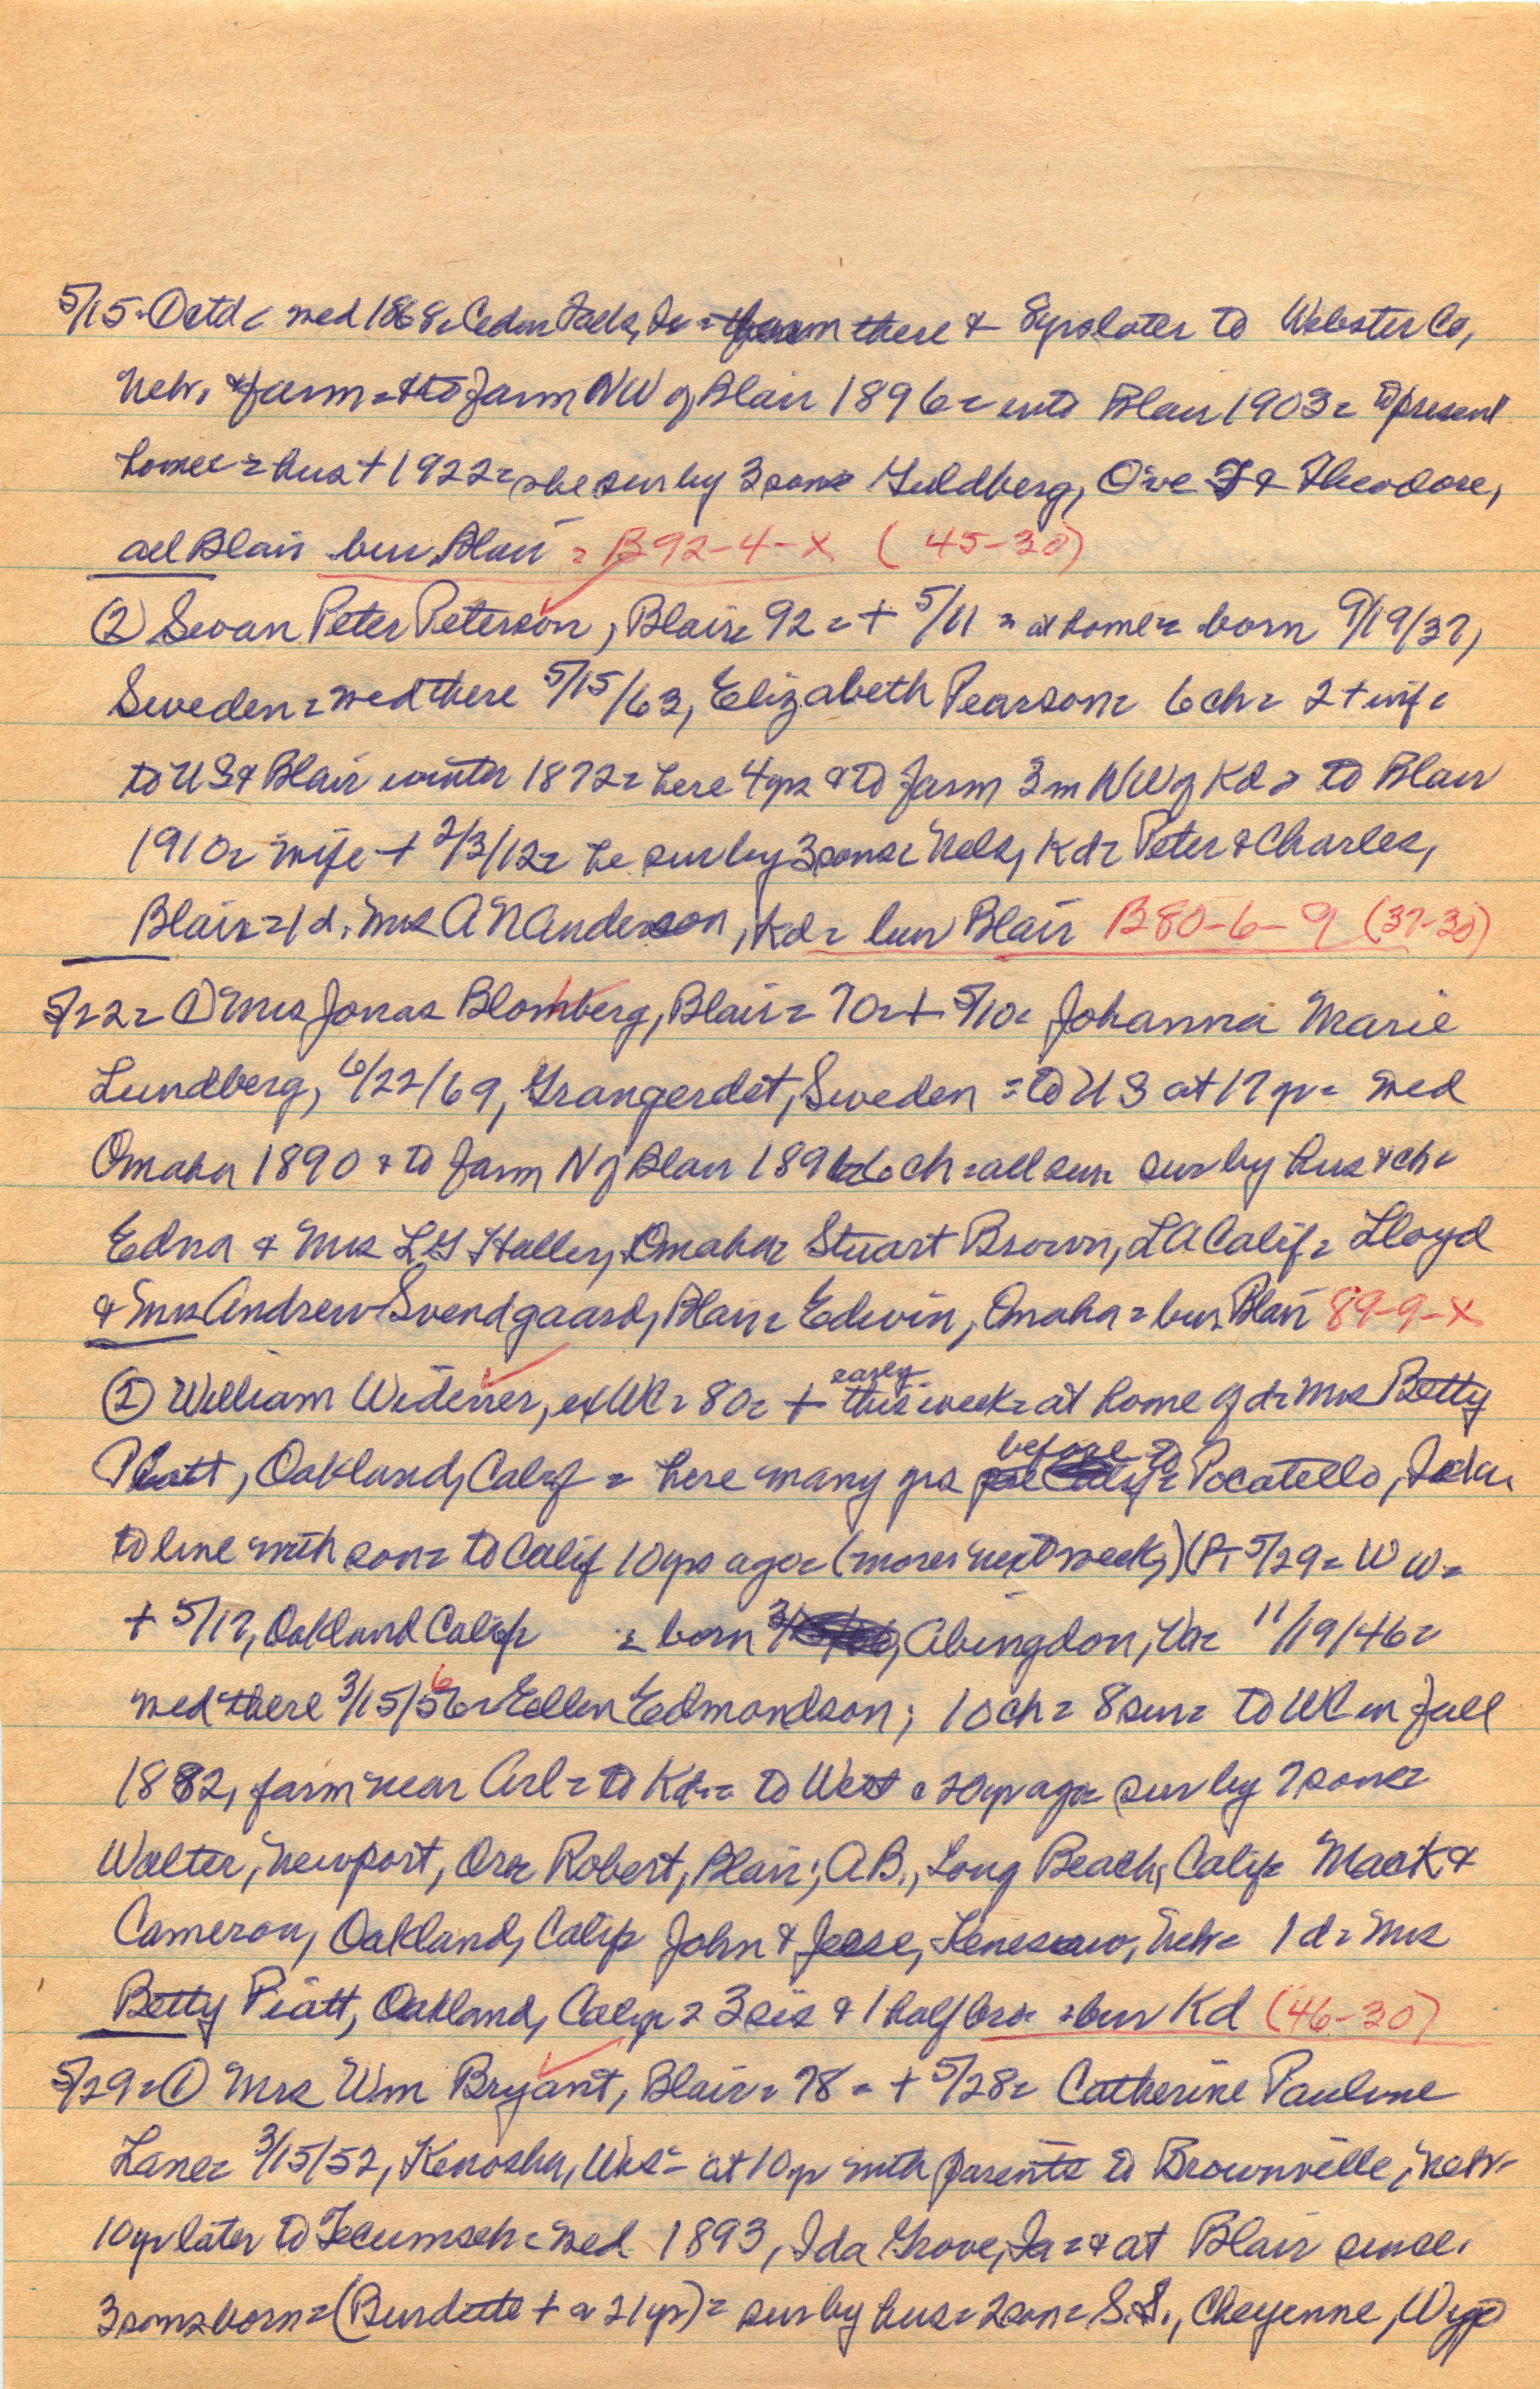 5/15 = Octd = wed 1868 = Cedar Falls, Ia = farm there & 8 yrs later to Webster Co,
Nebr & farm = to farm NW of Blair 1896 = into Blair 1903 = to present
home = hus + 1922 = she sur by 3 sons Guldberg, Ove T & Theodore,
all Blair bur Blair = B92-4-X (45-30)
② Swan Peter Peterson, Blair = 92 = + 5/11 = at home = born 9/19/37,
Sweden = wed there 5/15/63, Elizabeth Pearson = 6 ch = 2 + inf =
to US & Blair winter 1872 = here 4 yrs & to farm 3 m NW of Kd = to Blair
1910 = wife + 2/3/12 = he sur by 3 sons = Nels, Kd = Peter & Charles,
Blair = 1 d, Mrs A N Anderson, Kd = bur Blair B80-6-9 (37-30)
5/22 = ① Mrs Jonas Blomberg, Blair = 70 = + 5/10 = Johanna Marie
Lundberg, 6/22/69, Grangerdet, Sweden = to US at 17 yr = wed
Omaha 1890 & to farm N of Blair 1891 = 6 ch = all sur = sur by hus & ch =
Edna & Mrs L G Haller, Omaha = Stuart Brown, LA Calif = Lloyd
& Mrs Andrew Svendgaard, Blair = Edwin, Omaha = bur Blair 89-9-X
② William Widener, ex WC = 80 = + early this week = at home of d = Mrs Betty
Piatt, Oakland, Calif = here many yrs before to Pocatello, Idaho
to live with son = to Calif 10 yrs ago = (more next week) (P 5/29 = W W =
+ 5/17, Oakland Calif = born Abingdon, Va = 11/19/46 =
wed there 3/15/66 = Ellen Edmondson; 10 ch = 8 sur = to WC in fall
1882, farm near Arl = to Kd = to West = 20 yr ago = sur by 7 sons =
Walter, Newport, Ore = Robert, Blair; A.B., Long Beach, Calif = Mack &
Cameron, Oakland, Calif = John & Jesse, Kenesaw, Nebr = 1 d = Mrs
Betty Piatt, Oakland, Calif = 3 sis & 1 half bro = bur Kd (46-30)
5/29 = ① Mrs Wm Bryant, Blair = 78 = + 5/28 = Catherine Pauline
Lane = 3/15/52, Kenosha, Wis = at 10 yr with parents to Brownville, Nebr =
10 yr later to Tecumseh = wed 1893, Ida Grove, Ia = & at Blair since.
3 sons born = (Burdette + a 21 yr) = sur by hus = 2 son = S.S., Cheyenne, Wyo